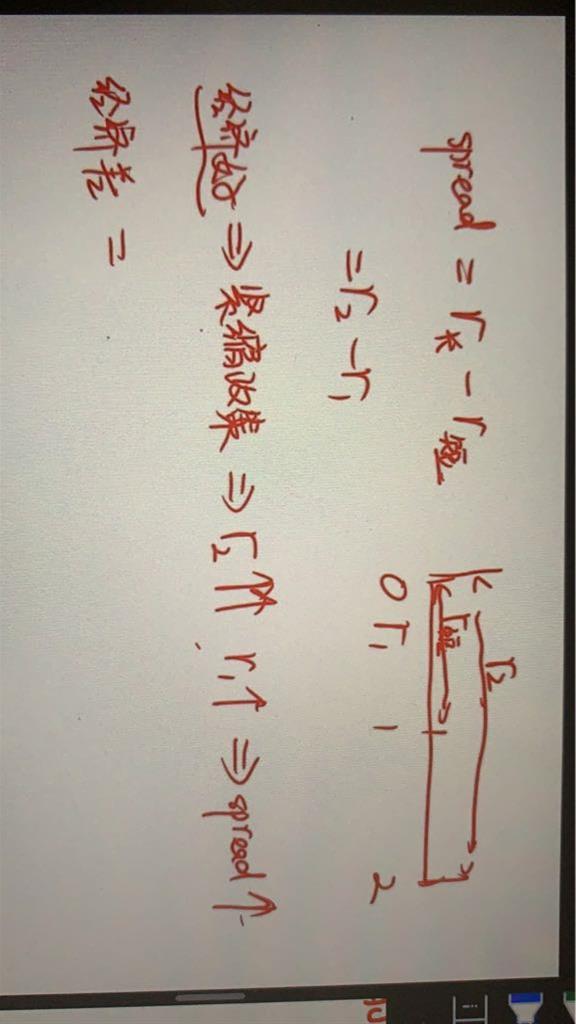 spread = r长 - r短
r2
r短
= r2 - r1
0 r1 1 2
经济好 ⇒ 紧缩政策 ⇒ r2↑↑ r1↑ ⇒ spread↑
经济差 =